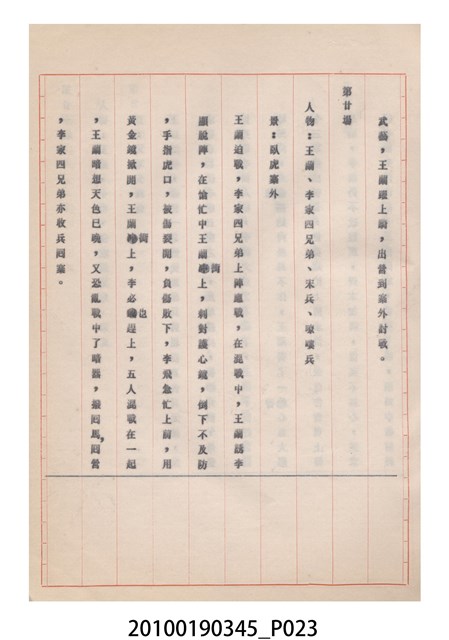 武藝，王蘭躍上前，出營到寨外討戰。
第廿場
人物：王蘭、李家四兄弟、宋兵、嘍囉兵
景：臥虎寨外
王蘭迫戰，李家四兄弟上陣應戰，在混戰中，王蘭誘李
顯脫陣，在愴忙中王蘭衝上，刺對護心鏡，倒下不及防
，手指虎口，被傷裂開，負傷敗下，李飛急忙上前，用
黃金鐺掀開，王蘭衝上，李必也趕上，五人混戰在一起
，王蘭暗想天色已晚，又恐亂戰中了暗器，撥回馬，回營
，李家四兄弟亦收兵回寨。
20100190345_P023